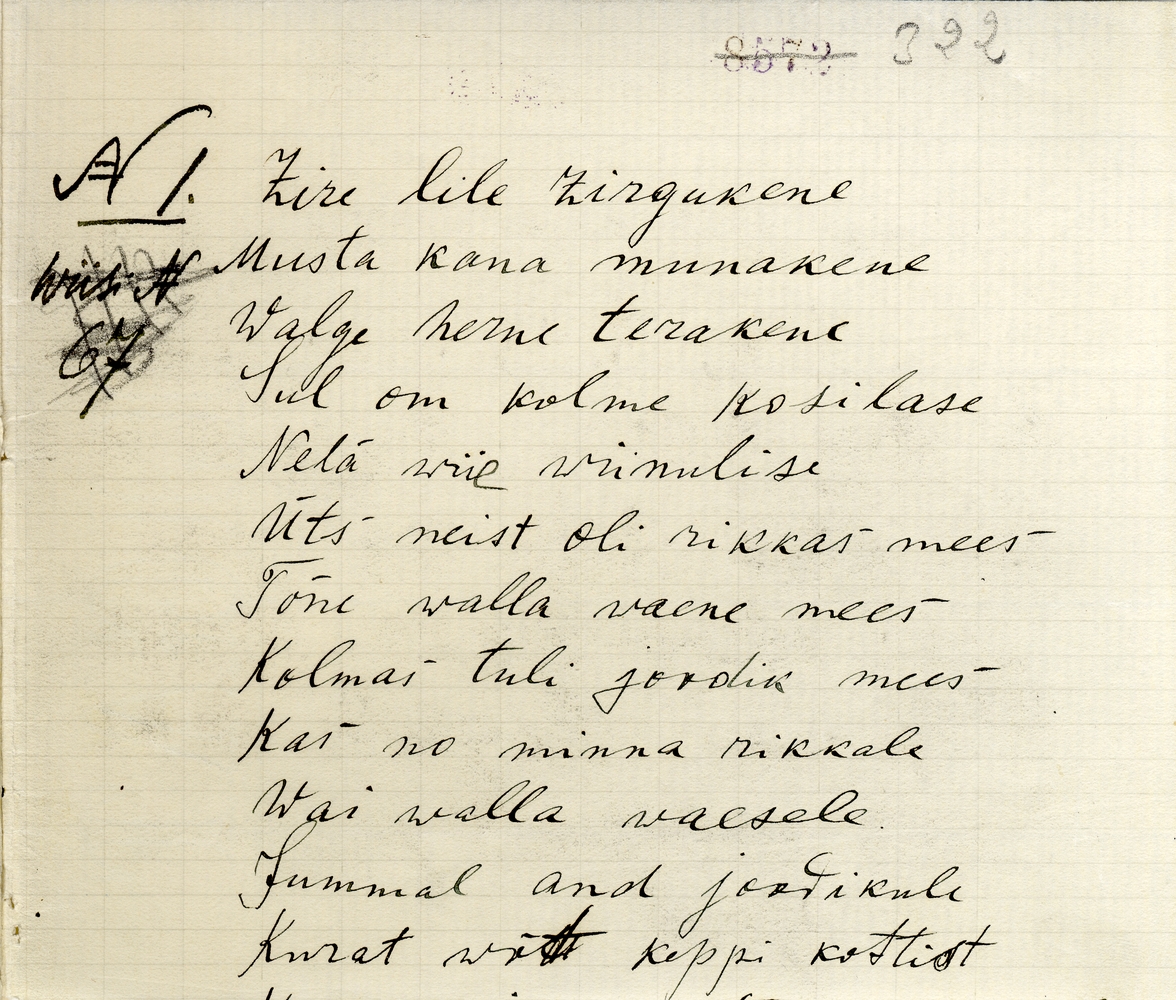 8572 322
N 1. Zire lile zirgukene
Musta kana munakene
wiisi N
Walge herne terakene
67
Sul om kolme kosilase
Nelä wiie wiinulise
Üts neist oli rikkas mees
Tõne walla vaene mees
Kolmas tuli joodik mees
Kas no minna rikkale
Wai walla waesele.
Jummal and joodikule
Kurat wõtt keppi kottist